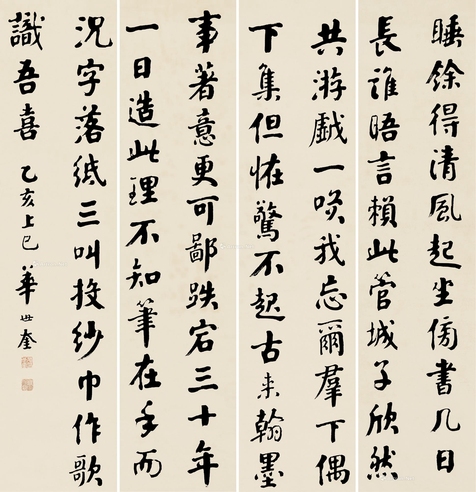 睡餘得清風起坐傍書几日
長誰晤言賴此管城子欣然
共游戲一笑我忘爾羣下偶
下集但怪驚不起古来翰墨
事著意更可鄙跌宕三十年
一日造此理不知筆在手而
況字落紙三叫投紗巾作歌
識吾喜 乙亥上巳 華世奎